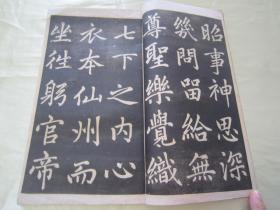 昭事神思深
幾問留給無
尊聖樂覺織
七下之内心
衣本仙州而
坐徃躬官帝